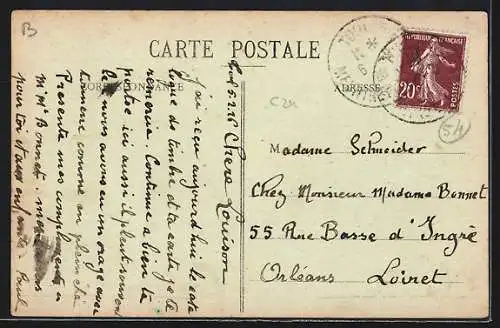 B
CARTE POSTALE
CORRESPONDANCE
ADRESSE
C24
54
TOUL
RÉPUBLIQUE FRANÇAISE
20c
POSTES
Toul 5.6.26 Chère Louison
J'ai reçu aujourd'hui le cata
logue de timbre et ta carte je te
remercie. Continue a bien te
porter ici aussi il pleut souvent
nous avons eu un orage avec
tonnerre comme en plein été
Présente mes compliments a
Mr Mme Bonnet. 
pour toi et aux enfants. Paul
Madame Schneider
Chez Monsieur Madame Bonnet
55 Rue Basse d'Ingré
Orléans Loiret